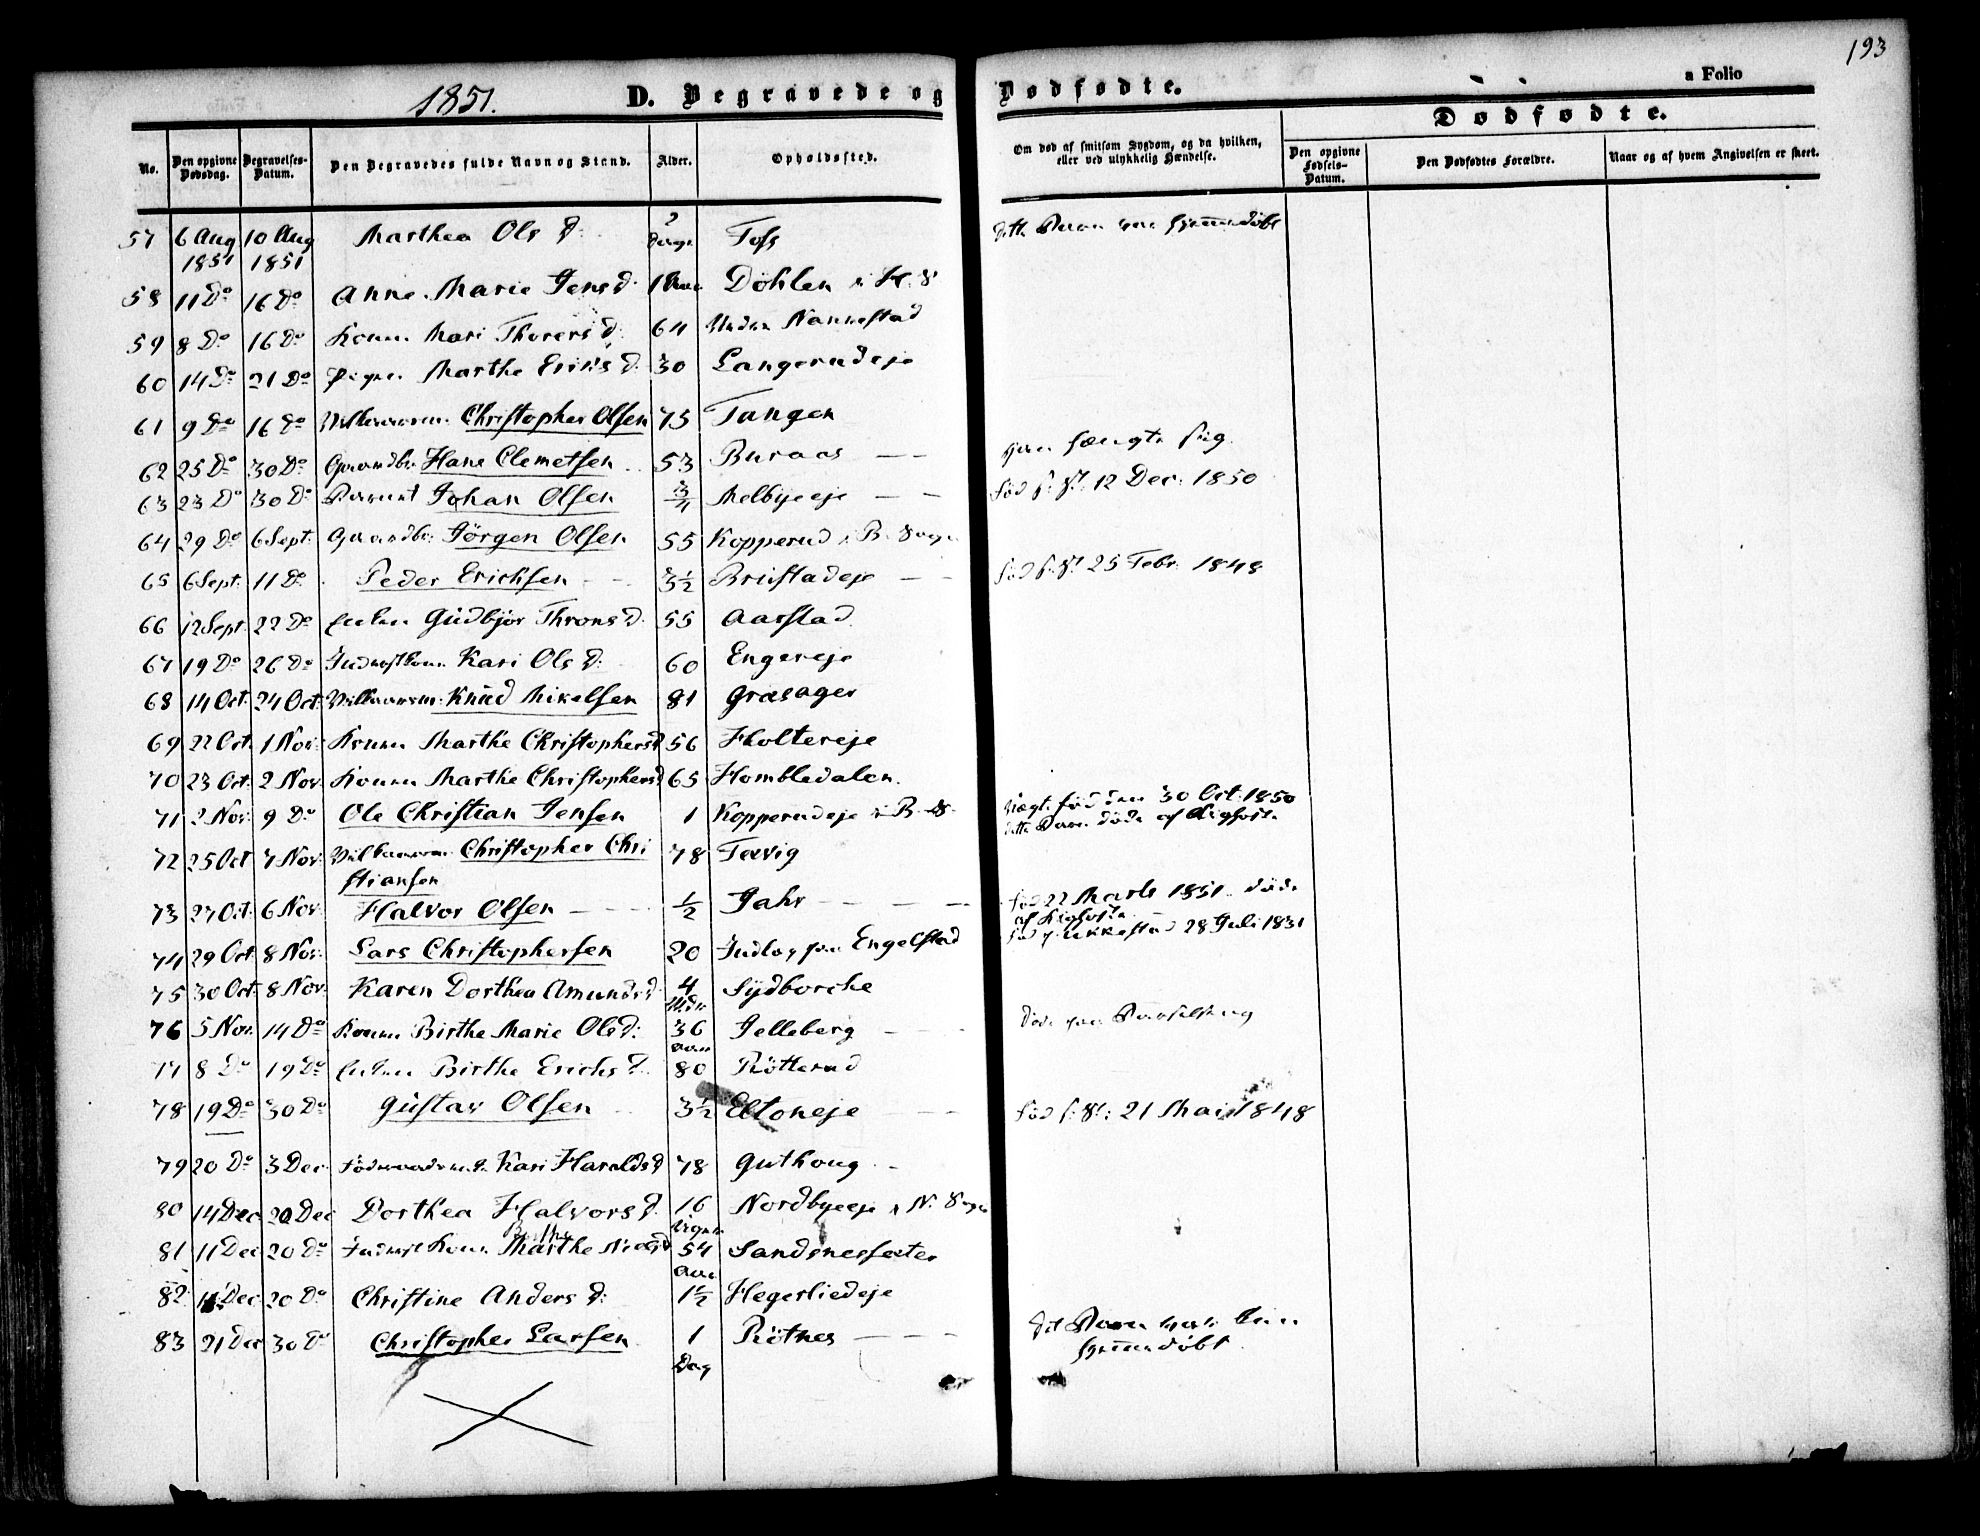 193
1851.
D. Begravede og Dødfødte.
a Folio
Dødfødte.
No.
Den opgivne Dødsdag.
Begravelses-Datum.
Den Begravedes fulde Navn og Stand.
Alder.
Opholdssted.
Om død af smitsom Sygdom, og da hvilken, eller ved ulykkelig Hændelse.
Den opgivne Fødsels-Datum.
Den Dødfødtes Forældre.
Naar og af hvem Angivelsen er skeet.
57 6 Aug 1851 10 Aug 1851 Marthea Ols D: Dage Foss
58 11 Do 16 Do Anne Marie Jens d. 1 Döhlen i H. S
59 8 Do 16 Do Konen Mari Thorers d: 64 Nannestad
60 14 Do 21 Do Pigen Marthe Eriks d. 30 Langerudeje
61 9 Do 16 Do Christopher Olsen 75 Tangen
62 25 Do 30 Do Gaardbr. Hans Clemetsen 53 Buraas
63 23 Do 30 Do Johan Olsen 3/4 Melbyeeje Död 12 Dec: 1850
64 29 Do 6 Sept. Gaardbr: Jörgen Olsen 55 Kopperud i B. Sogn
65 6 Sept. 11 Do Peder Erichsen 3½ Brustadeje 25 Febr. 1848
66 12 Sept. 22 Do Enken Gudbjör Throns d. 55 Aarstad
67 19 Do 26 Do Kari Ols d: 60 Engereje
68 14 Oct. 24 Oct. Knud Mikelsen 81 Græsager
69 22 Oct. 1 Nov. Konen Marthe Christophersd 56 Holtereje
70 23 Oct. 2 Nov. Konen Marthe Christophersd 65 Hombledalen.
71 2 Nov. 9 Do Ole Christian Jensen 1 Kopperudeje i B. S. född den 30 Oct. 1850
døde af Kighoste
72 25 Oct 7 Nov. Christopher Chri 78 Tævig
stiansen
73 27 Oct. 6 Nov. Halvor Olsen ½ Jahr född 22 Marts 1851. döde
af Kighoste
74 29 Oct. 8 Nov. Lars Christophersen 20 Engelstad 28 Juli 1831
75 30 Oct. 8 Nov. Karen Dorthea Amundsd. 4 Sydborche
76 5 Nov. 14 Do Konen Birthe Marie Olsd: 36 Aar Jelleberg döde paa Barselseng
77 8 Do 19 Do Enken Birthe Erichs d. 80 Rötterud
78 19 Do 30 Do Gustav Olsen 3½ Eltoneje 21 Mai 1848
79 20 Do 3 Dec. Kari Haralds d 78 Guthoug
80 14 Dec 20 Dec Dorthea Halvors d. 16 Nordbyeeje i N. Sogn
81 11 Dec 20 Do Marthe Niels d 54 Sandsnesseter
Birthe
82 11 Dec 20 Do Christine Anders d: 1½ Hegerliedeje
83 21 Dec 30 Do Christopher Larsen 1 Dag Rötnes
hjemmedöbt